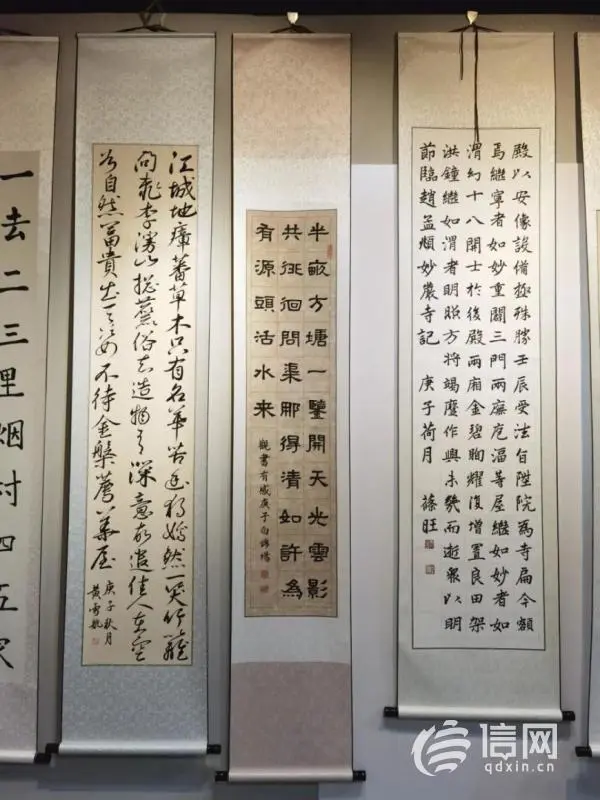 殿以安像設備極殊勝壬辰受法旨陞院為寺扁今額
焉繼寧者如妙重闢三門兩廡庖湢等屋繼如妙者如
渭幻十八開士於後殿兩廂金碧眴耀復增置良田架
洪鐘繼如渭者明照方將竭蹙作興未幾而逝眾以明
節臨趙孟頫妙嚴寺記 庚子荷月
半畝方塘一鑒開天光雲影
共徘徊問渠那得清如許為
有源頭活水來
觀書有感庚子
江城地瘴蕃草木只有名花苦幽獨嫣然一笑竹籬
間桃李漫山總麤俗也知造物有深意故遣佳人在空
谷自然富貴出天姿不待金盤薦華屋
庚子秋月
一去二三里烟村四五家
信网
qdxin.cn